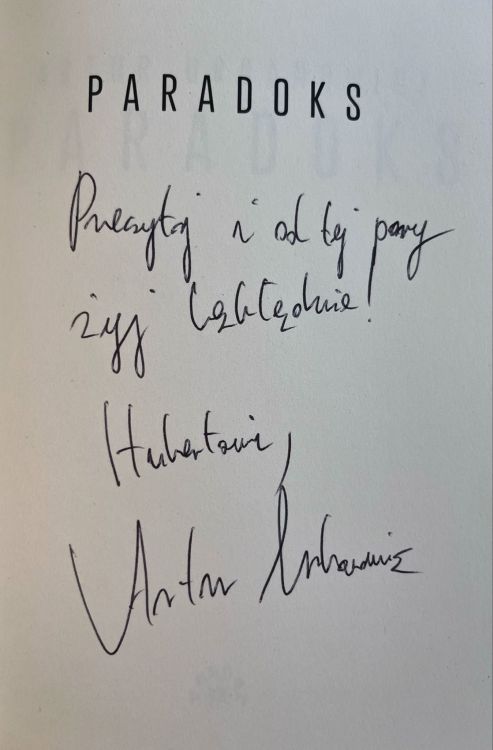 PARADOKS
Przeczytaj i od tej pory
żyj bezbłędnie!
Hubertowi,
Artur Urbanowicz